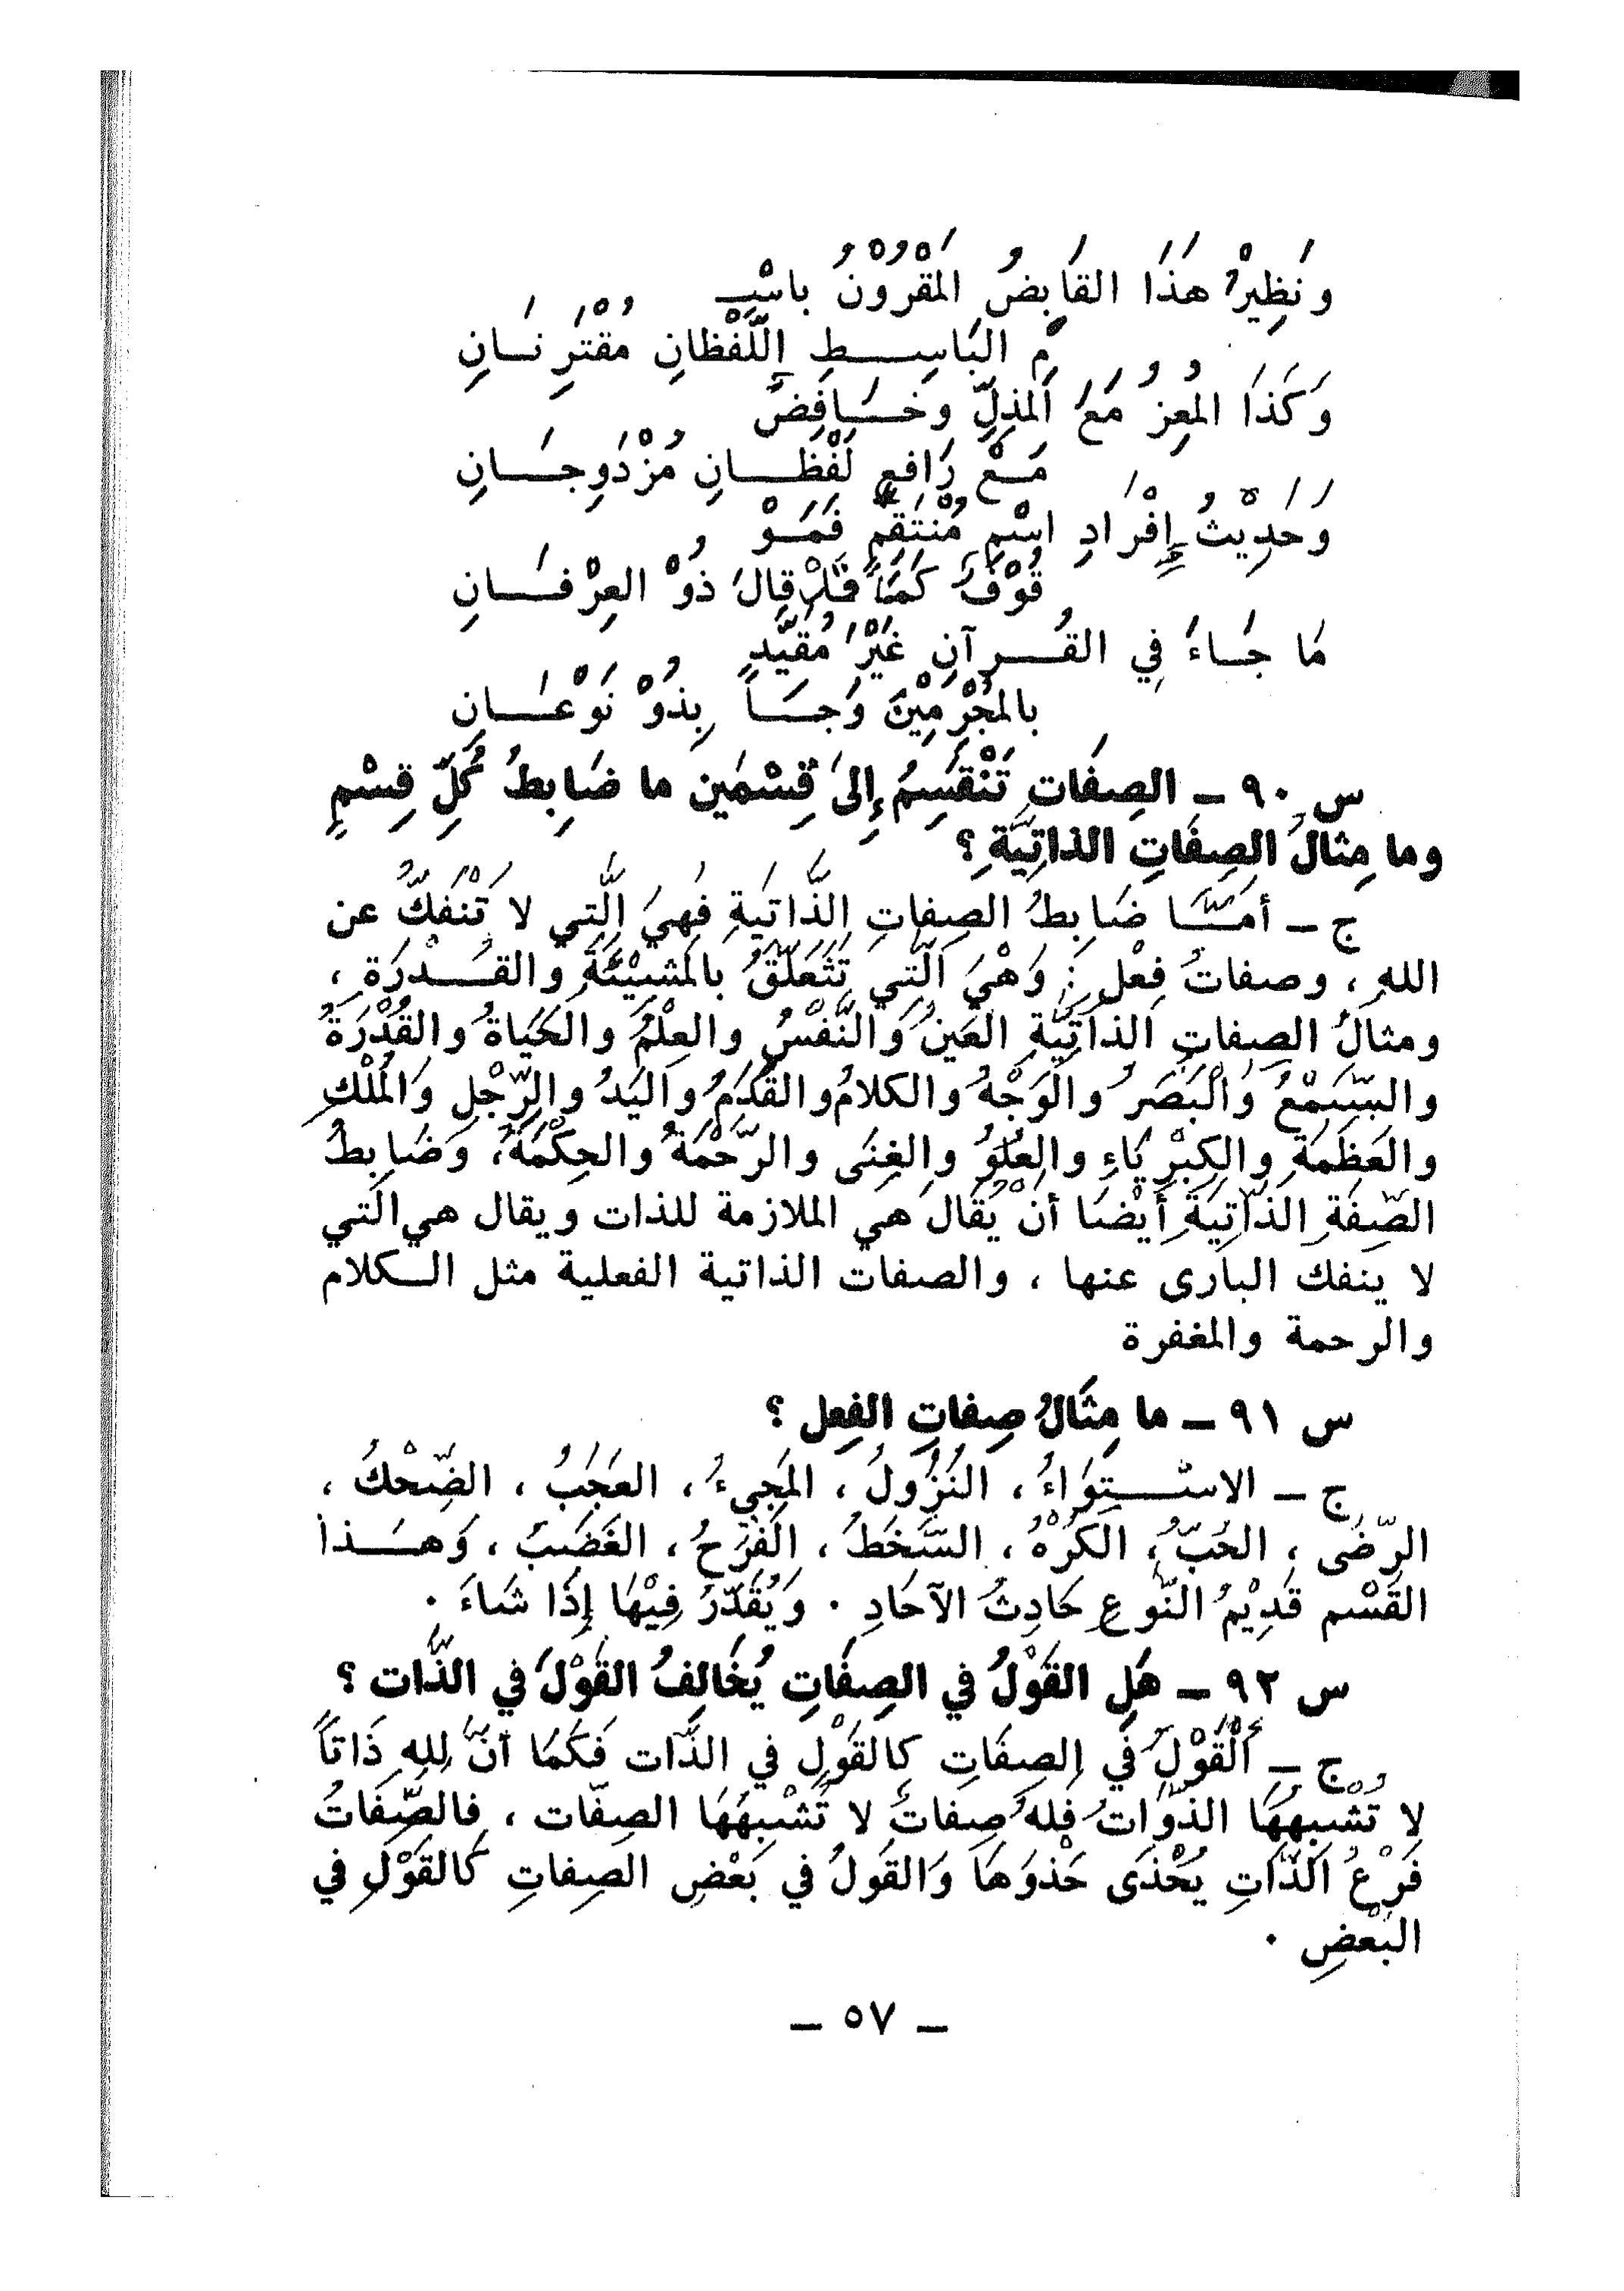 وَنَظِيرُ هَذَا القَابِضُ المَقْرُوْنُ باسْـ
مِ البَاسِطِ اللَّفْظانِ مُقْتَرِنَانِ
وَكَذَا المُعِزُ مَعَ المُذِلِّ وخَافِضٌ
مَعْ رَافعٍ لَفْظَانِ مُزْدَوِجَانِ
وَحَدِيْثُ إِفْرَادِ اسْمِ مُنْتَقِمٍ فَمَوْ
قُوْفٌ كَمَا قَدْ قالَ ذُوْ العِرْفَانِ
مَا جَاءَ فِي القُرآنِ غَيْرَ مُقَيَّدٍ
بالمُجْرِمِيْنَ وَجَا بِذُوْ نَوْعَانِ
س ٩٠ – الصِفَات تَنْقَسِمُ إِلىَ قِسْمَين ما ضَابِطُ كُلِّ قِسْمٍ
وما مِثالُ الصِفَاتِ الذاتِيَّةِ ؟
ج – أمَّا ضَابِطُ الصِفاتِ الذَّاتَيةِ فَهِيَ الَّتِي لا تَنْفَكُّ عن
اللهِ ، وصفاتُ فِعْلٍ : وَهْيَ الَّتِي تَتَعَلَّقُ بالمَشِيْئَةِ والقُدْرَةِ ،
ومثالُ الصِفاتِ الذَاتِيَّةِ العَينُ وَالنَّفْسُ والعِلْمُ والحَيَاةُ والقُدْرَةُ
والسَّمْعُ وَالْبَصَرُ والوَجْهُ والكلامُ والقَدَمُ واليَدُ والرِّجْلِ وَالمُلْكِ
والعَظَمَةِ والكِبْرِيَاءِ والعُلُوُّ والغِنَى والرَّحْمَةُ والحِكْمَةُ ، وَضَابِطُ
الصِّفَةِ الذَاتِيَةِ أَيْضَا أَنْ يُقَالَ هي الملازمة للذات ويقال هي التي
لا ينفك البارى عنها ، والصفات الذاتية الفعلية مثل الكلام
والرحمة والمغفرة
س ٩١ – ما مِثَالُ صِفاتِ الفِعل ؟
ج – الاسْتِوَاءُ ، النُزُولُ ، المَجِيءُ ، العَجَبُ ، الضِّحْكُ ،
الرِّضَى ، الحُبّ ، الكُرْهُ ، السَّخَطُ ، الفَرَحُ ، الغَضَبُ ، وَهَذا
القَسْم قَدِيْمُ النَّوعِ حَادِثُ الآحَادِ . وَيُقَدَّرُ فِيْهَا إِذَا شَاءَ .
س ٩٢ – هَلِ القَوْلُ في الصِفَاتِ يُخَالِفُ القَوْلَ في الذَّات ؟
ج – اَلْقَوْلُ فَي الصِفَاتِ كالقَوْلِ في الذَّات فَكَمَا أنَّ للهِ ذَاتَاً
لا تُشْبِهُهَا الذَّوَاتُ فلهُ صِفاتٌ لا تُشْبِهَهَا الصِفّات ، فالصِّفَاتُ
فَرْعُ الذَّاتِ يُحْذَى حَذْوَهَا وَالقَولُ في بَعْضِ الصِفاتِ كَالقَوْلِ في
البَعْضِ .
– ٥٧ –